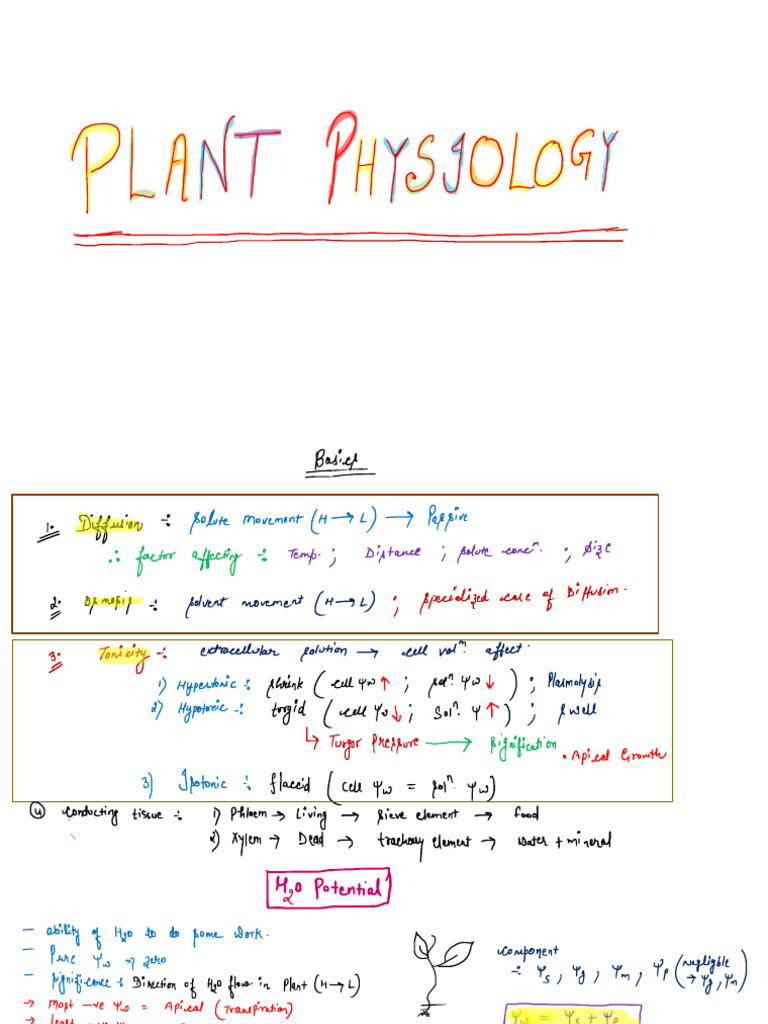 PLANT PHYSIOLOGY
Basics
1. Diffusion ÷ solute movement (H → L) → Passive
∴ factor affecting ÷ Temp. ; Distance ; solute concⁿ. ; Size
2. Osmosis ÷ solvent movement (H → L) ; specialized case of Diffusion.
3. Tonicity ÷ extracellular solution → cell volᵐ affect.
1) Hypertonic ÷ shrink (cell Ψw ↑ ; solⁿ. Ψw ↓) ; Plasmolysis
2) Hypotonic ÷ turgid (cell Ψw ↓ ; Solⁿ. Ψ ↑) ; swell
↳ Turgor Pressure → Signification
• Apical Growth
3) Isotonic ÷ flaccid (cell Ψw = solⁿ Ψw)
4 conducting tissue ÷ 1) Phloem → Living → Sieve element → food
2) Xylem → Dead → tracheary element → water + mineral
H₂O Potential
- ability of H₂O to do some work.
- Pure Ψw ⇒ zero
- significance ÷ Direction of H₂O flow in Plant (H → L)
→ most -ve Ψw = Apical (Transpiration)
→ least
component
÷ Ψs, Ψg, Ψm, Ψp (Negligible → Ψg, Ψm)
Ψw = Ψs + Ψp